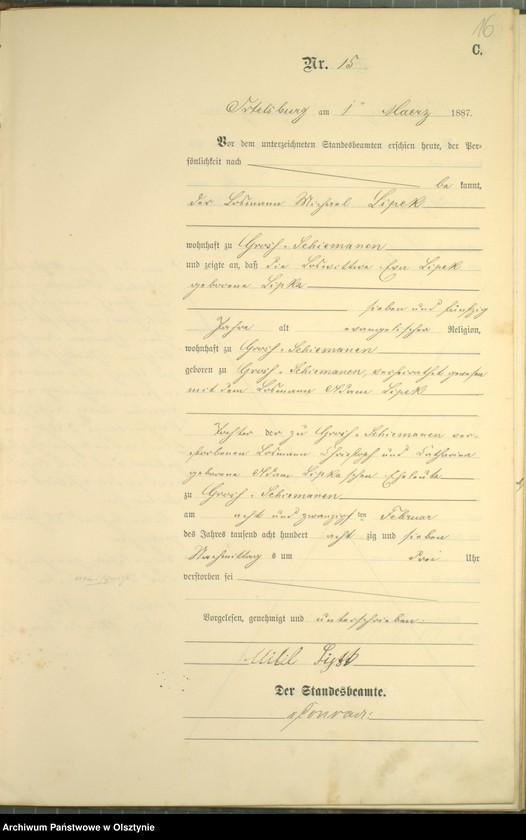 16
C.
Nr. 15
Ortelsburg am 1ten Maerz 1887.
Vor dem unterzeichneten Standesbeamten erschien heute, der Per-
sönlichkeit nach
be kannt,
der Losmann Michael Lipek
wohnhaft zu Gross-Schiemanen
und zeigte an, daß die Loswittwe Eva Lipek
geborene Lipka
sieben und fünfzig
Jahre alt evangelischer Religion,
wohnhaft zu Gross-Schiemanen
geboren zu Gross-Schiemanen, verheirathet gewesen
mit dem Losmann Adam Lipek
Tochter der zu Gross-Schiemanen ver-
storbenen Losmann Christoph und Catharina
geborene Adam Lipka'schen Eheleute
zu Gross-Schiemanen
am acht und zwanzigsten Februar
des Jahres tausend acht hundert acht zig und sieben
Nachmittag s um drei Uhr
verstorben sei
Vorgelesen, genehmigt und unterschrieben.
Der Standesbeamte.
Conrad
Archiwum Państwowe w Olsztynie